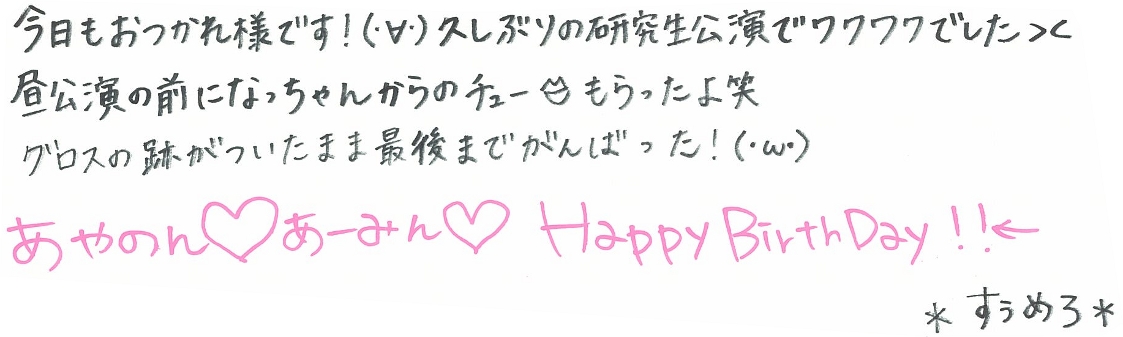 今日もおつかれ様です!(・∀・)久しぶりの研究生公演でワクワクでした><
昼公演の前になっちゃんからのチュー👄もらったよ笑
グロスの跡がついたまま最後までがんばった!(・ω・)
あやのん♡あーみん♡ Happy BirthDay!!←
*すぅめろ*